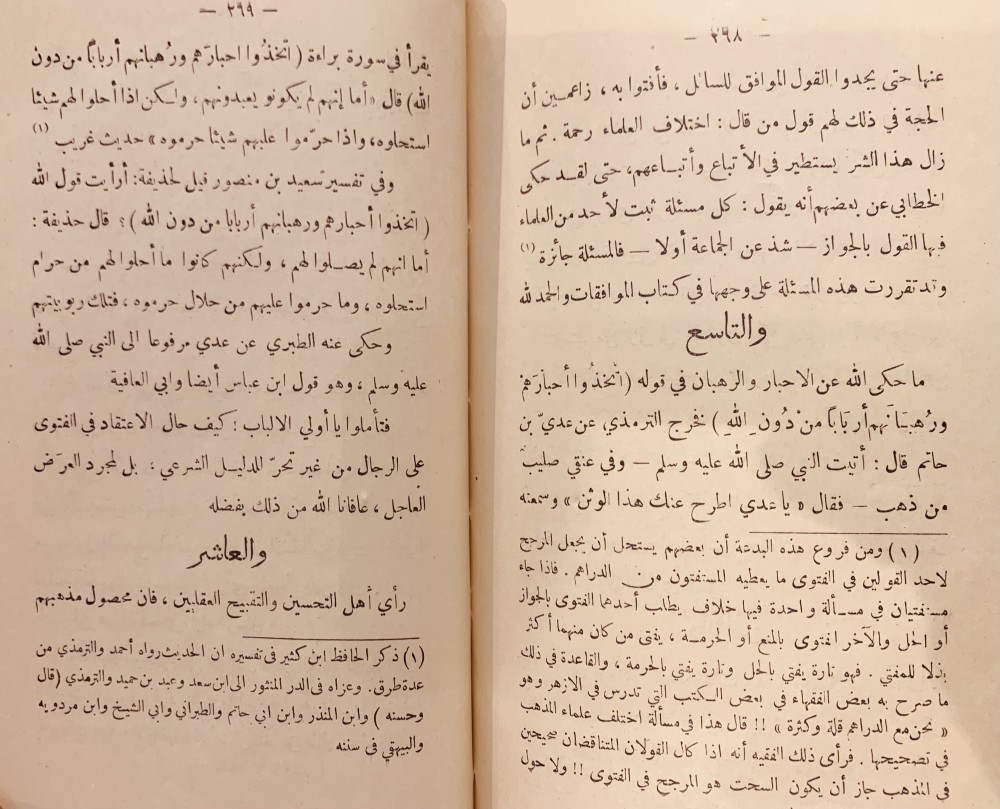 — ٣٩٨ —
عنها حتى يجدوا القول الموافق للسائل ، فأفتوا به ، زاعمين أن
الحجة في ذلك لهم قول من قال : اختلاف العلماء رحمة . ثم ما
زال هذا الشر يستطير في الأتباع وأتباعهم، حتى لقد حكى
الخطابي عن بعضهم أنه يقول : كل مسئلة ثبت لأحد من العلماء
فيها القول بالجواز — شذ عن الجماعة أولا — فالمسئلة جائزة (١)
وقد تقررت هذه المسئلة على وجهها في كتاب الموافقات والحمد لله
والتاسع
ما حكى الله عن الاحبار والرهبان في قوله (اتَّخَذُوا أَحبارَهمْ
ورُهبَانَهم أربَابًا منْ دُون ِ اللهِ ) فخرج الترمذي عن عديّ بن
حاتم قال : أتيت النبي صلى الله عليه وسلم — وفي عنقي صليب
من ذهب — فقال « ياعدي اطرح عنك هذا الوثن » وسمعته
(١) ومن فروع هذه البدعة أن بعضهم يستحل أن يجعل المرجح
لاحد القولين في الفتوى ما يعطيه المستفتون من الدراهم . فاذا جاء
مستفتيان في مسألة واحدة فيها خلاف يطلب أحدهما الفتوى بالجواز
أو الحل والآخر الفتوى بالمنع أو الحرمة ، يفتى من كان منهما أكثر
بذلا للمفتي . فهو تارة يفتي بالحل وتارة يفتي بالحرمة ، والقاعدة في ذلك
ما صرح به بعض الفقهاء في بعض الكتب التي تدرس في الازهر وهو
« نحن مع الدراهم قلة وكثرة » !! قال هذا في مسألة اختلف علماء المذهب
في تصحيحها . فرأى ذلك الفقيه أنه اذا كان القولان المتناقضان صحيحين
في المذهب جاز أن يكون السحت هو المرجح في الفتوى !! ولا حول
— ٣٩٩ —
يقرأ في سورة براءة ( اتخذُوا احبارَهم ورُهبانهم أربابًا من دون
الله) قال « أما إنهم لم يكونو يعبدونهم ، ولكن اذا أحلوا لهم شيئا
استحلوه، واذا حرّموا عليهم شيئا حرموه » حديث غريب (١)
وفي تفسير سعيد بن منصور قيل لحذيفة: أرأيت قول الله
( اتخذوا أحبارهم ورهبانهم أربابا من دون الله )؟ قال حذيفة :
أما انهم لم يصلوا لهم ، ولكنهم كانوا ما أحلوا لهم من حرام
استحلوه ، وما حرموا عليهم من حلال حرموه ، فتلك ربوبيتهم
وحكى عنه الطبري عن عدي مرفوعا الى النبي صلى الله
عليه وسلم ، وهو قول ابن عباس أيضا وابي العافية
فتأملوا يا أولي الالباب : كيف حال الاعتقاد في الفتوى
على الرجال من غير تحرّ للدليل الشرعي ؛ بل لمجرد العرَض
العاجل ، عافانا الله من ذلك بفضله
والعاشر
رأي أهل التحسين والتقبيح العقليين ، فان محصول مذهبهم
(١) ذكر الحافظ ابن كثير في تفسيره ان الحديث رواه أحمد والترمذي من
عدة طرق . وعزاه في الدر المنثور الى ابن سعد وعبد بن حميد والترمذي (قال
وحسنه ) وابن المنذر وابن ابي حاتم والطبراني وابي الشيخ وابن مردويه
والبيهقي في سننه